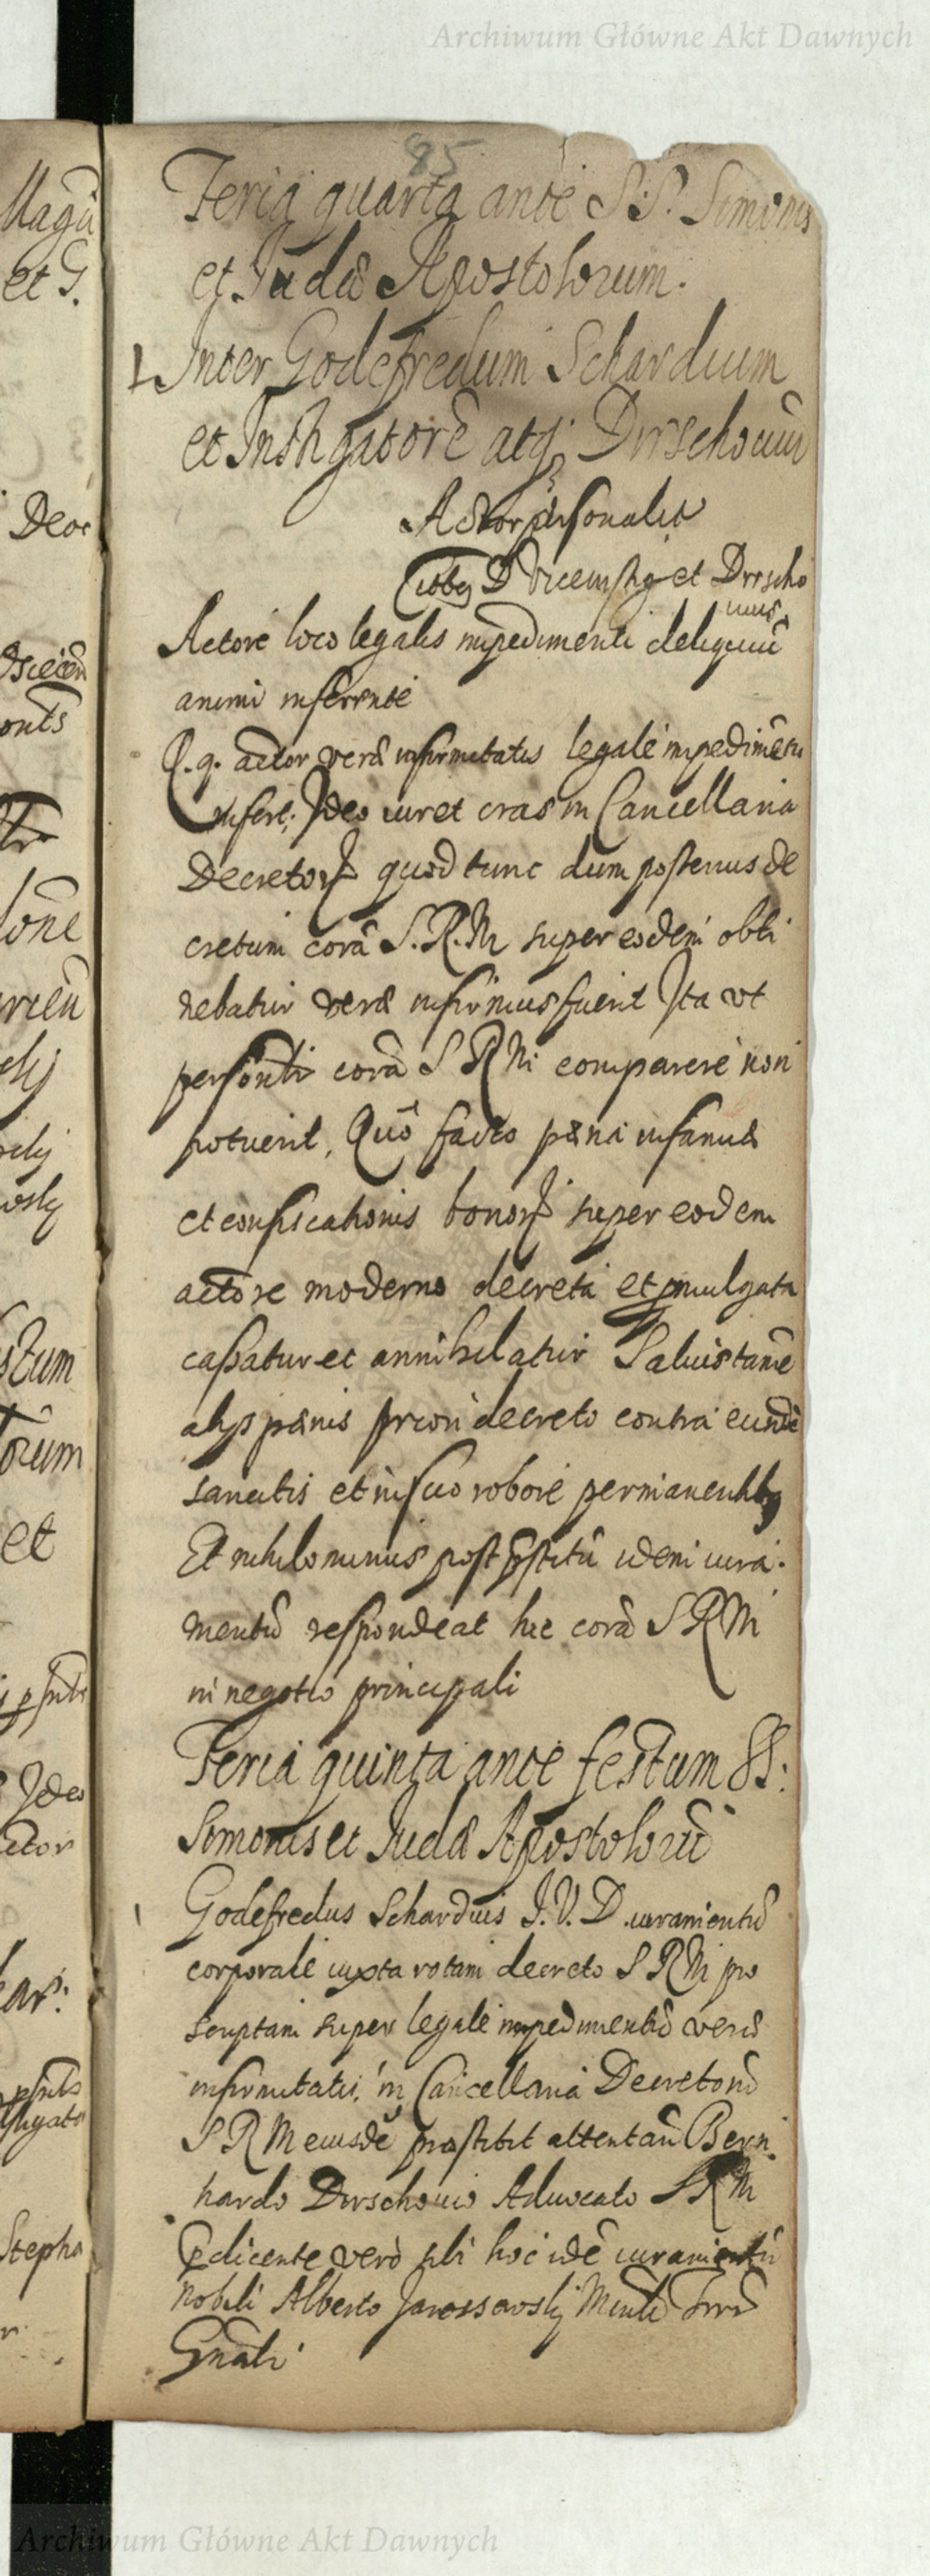 Archiwum Główne Akt Dawnych
85
Feria quarta ante S.S. Simonis
et Judæ Apostolorum.
Inter Godefredum Schardium
et Instigatorē atq; Dirschouium
Actor personalit
Citatus D Viceinstigr et Dirscho
uius
Actore loco legalis impedimenti deliquiū
animi inferente
Q.q. actor veræ infirmitatis legale impedimētū
infert; Ideo iuret cras in Cancellaria
Decretorū quod tunc dum posterius de
cretum corā S.R.M super eodem obti
nebatur veræ infirmus fuerit Ita vt
personalr corā S R M comparere non
potuerit, Quō facto pæna infamiæ
et confiscationis bonorū super eodem
actore moderno decreta et pmulgata
cassatur et annihilatur Saluis tamē
alijs pænis priori decreto contra eundē
sancitis et in suo robore permanentibq
Et nihilominus post pstitū idem iura.
mentū respondeat hic corā S R M
in negotio principali
Feria quinta ante festum SS:
Simonis et Judæ Apostolorū
Godefredus Schardius I.V.D. iuramentū
corporale iuxta rotam decreto S R M præ
scriptam super legale impedimentū veræ
infirmitatis, in Cancellaria Decretorū
S R M eiusdē præstitit attentan Bern
hardo Dirschouio Aduocato S R M
Pdicente verò sibi hoc idē iuramentū
Nobili Alberto Jarossewskj Minlē Trrē
Gnāli
Archiwum Główne Akt Dawnych